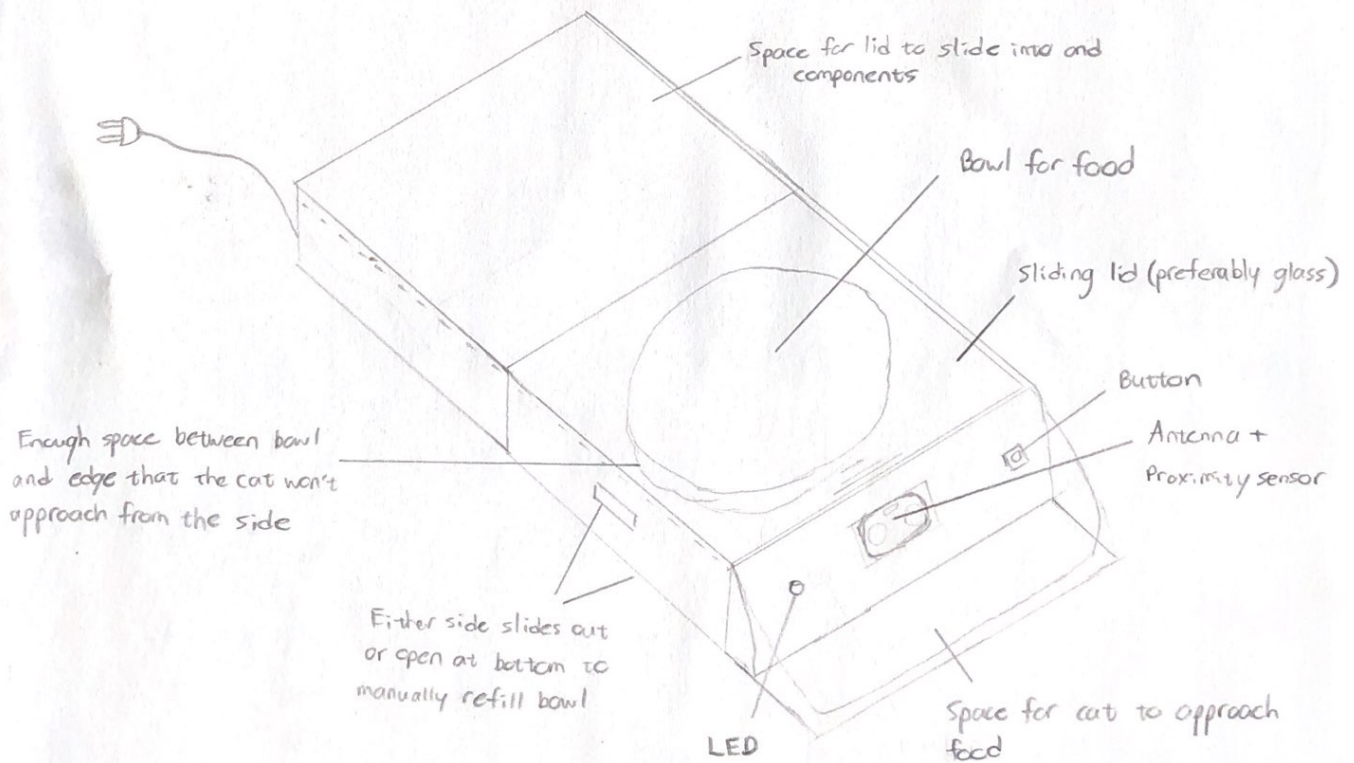 Space for lid to slide into and
components
Bowl for food
Sliding lid (preferably glass)
Button
Antenna +
Proximity sensor
Enough space between bowl
and edge that the cat won't
approach from the side
Either side slides out
or open at bottom to
manually refill bowl
LED
Space for cat to approach
food